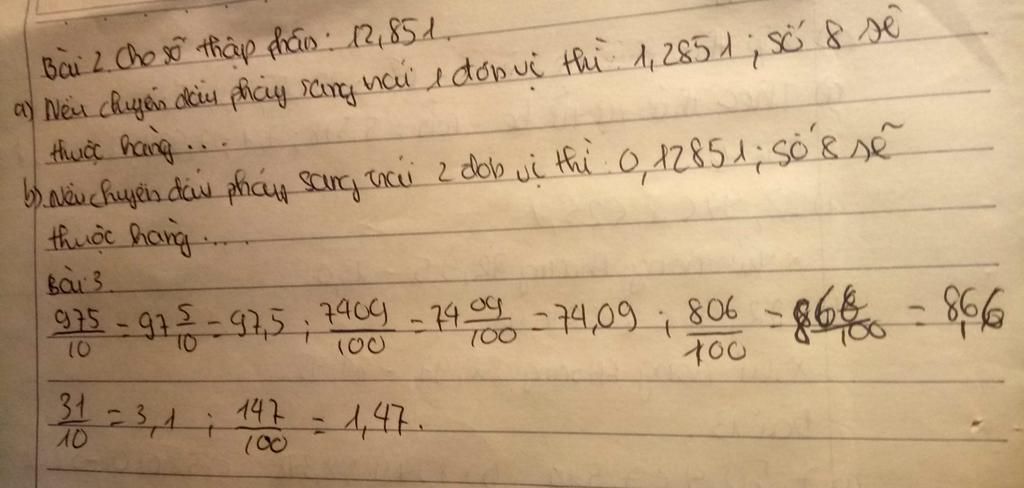 Bài 2. Cho số thập phân: 12,851.
a) Nếu chuyển dấu phẩy sang trái 1 đơn vị thì 1,2851; số 8 sẽ
thuộc hàng...
b) Nếu chuyển dấu phẩy sang trái 2 đơn vị thì 0,12851; số 8 sẽ
thuộc hàng....
Bài 3
975/10 = 97 5/10 = 97,5 ; 7409/100 = 74 09/100 = 74,09 ; 806/100 = /100 = 
31/10 = 3,1 ; 147/100 = 1,47.